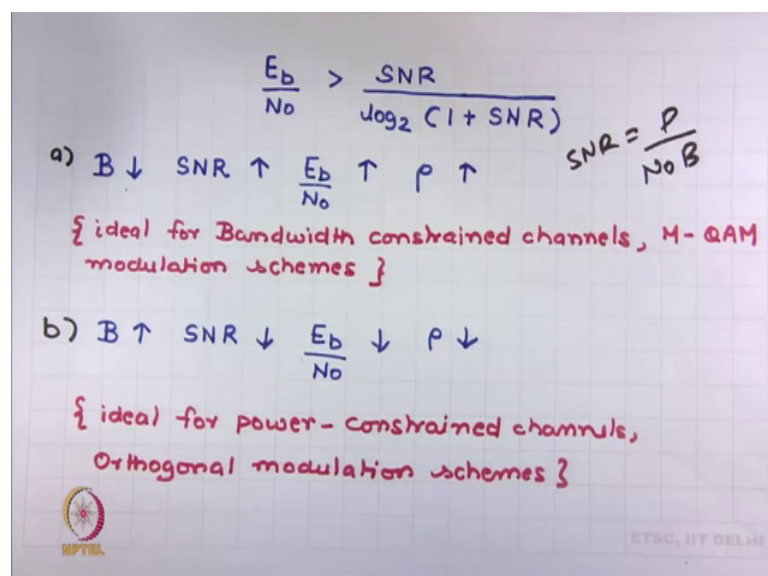 Eb/No > SNR / log2 (1 + SNR)
SNR = P / NoB
a) B ↓ SNR ↑ Eb/No ↑ ρ ↑
{ ideal for Bandwidth constrained channels, M-QAM
modulation schemes }
b) B ↑ SNR ↓ Eb/No ↓ ρ ↓
{ ideal for power-constrained channels,
Orthogonal modulation schemes }
NPTEL
ETSC, IIT DELHI